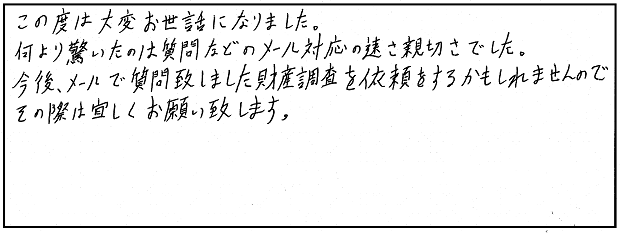 この度は大変お世話になりました。
何より驚いたのは質問などのメール対応の速さ親切さでした。
今後、メールで質問致しました財産調査を依頼をするかもしれませんので
その際は宜しくお願い致します。